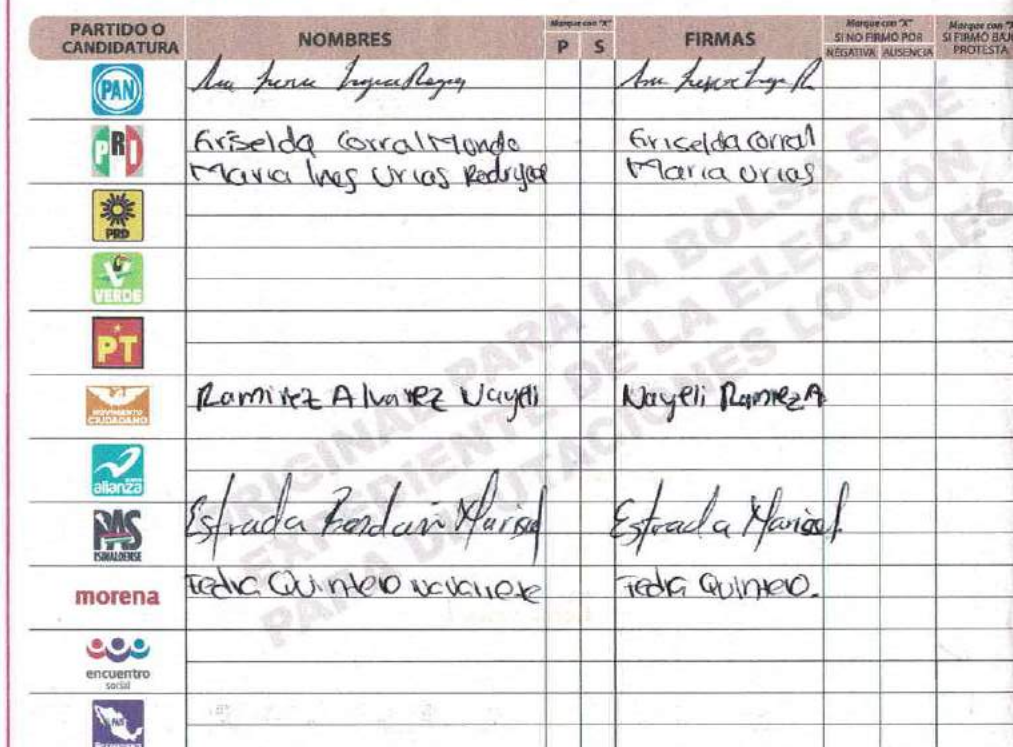 PARTIDO O CANDIDATURA NOMBRES Marque con "X" P S FIRMAS Marque con "X" SI NO FIRMÓ POR NEGATIVA AUSENCIA Marque con "X" SI FIRMÓ BAJO PROTESTA
PAN
PRI Griselda Corral Griselda Corral
Maria Ines Urias Maria Urias
PRD
VERDE
PT
MOVIMIENTO CIUDADANO Ramirez Alvarez Nayeli Nayeli Ramirez A
alianza
PAS SINALOENSE Estrada Marisol Estrada Marisol
morena Fedra Quintero Navarrete Fedra Quintero.
encuentro social
ORIGINAL PARA LA BOLSA 5 DE
EXPEDIENTE DE LA ELECCIÓN
PARA DIPUTACIONES LOCALES